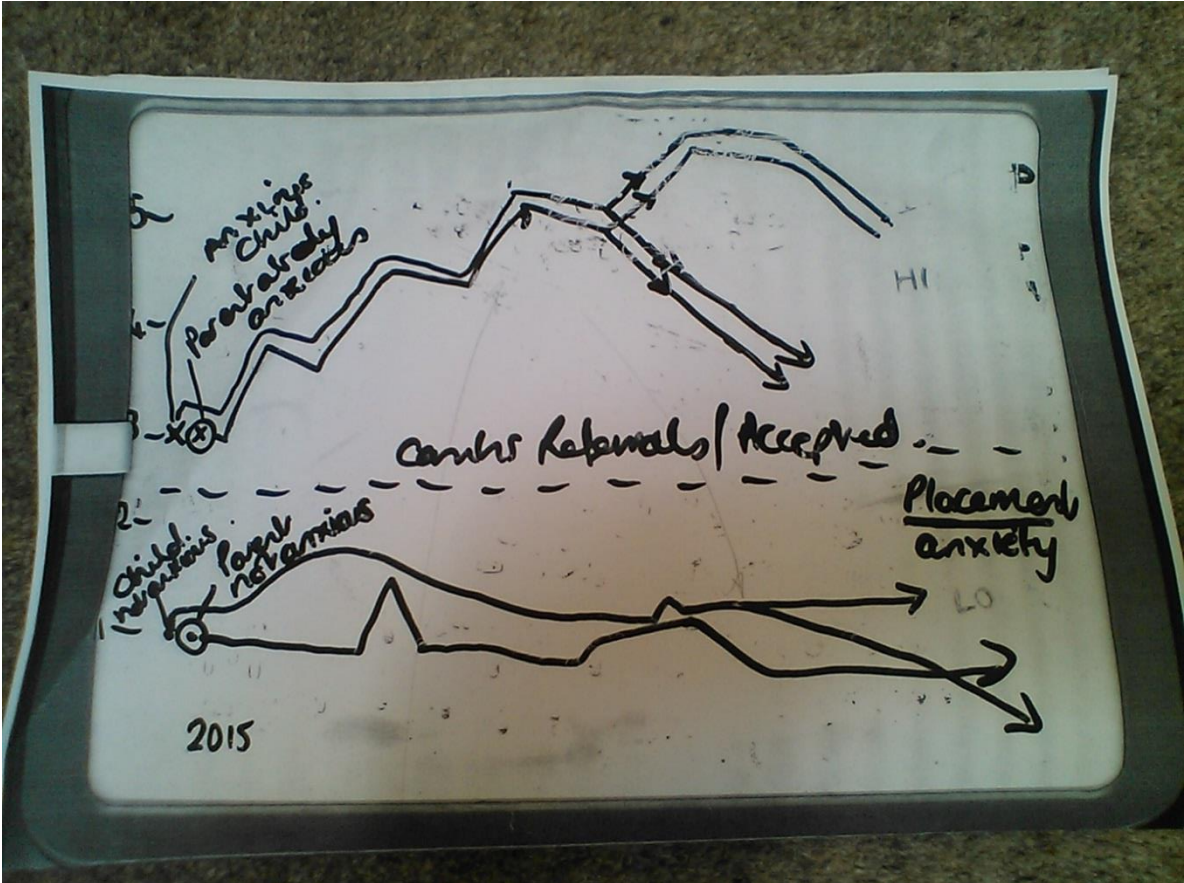 5
Anxious
child.
Parent already
anxious
4
HI
3
Camhs Referrals/Accepted.
2
Placement
anxiety
Child
not anxious
Parent
not anxious
1
LO
2015